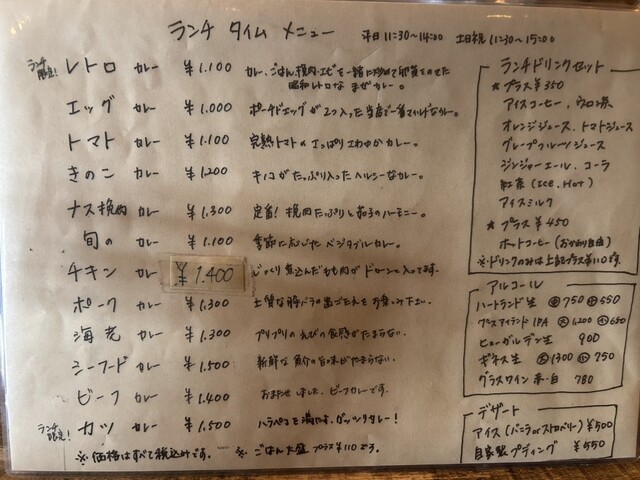 ランチ タイム メニュー 平日 11:30~14:00 土日祝 11:30~15:00
ランチ限定! レトロ カレー ¥1.100 カレー、ごはん、挽肉、エビを一緒に炒めて卵黄をのせた
昭和レトロな まぜカレー。
エッグ カレー ¥1.000 ポーチドエッグが2つ入った当店で一番マイルドなカレー。
トマト カレー ¥1.100 完熟トマトの さっぱりさわやかカレー。
きのこ カレー ¥1.200 キノコがたっぷり入ったヘルシーなカレー。
ナス挽肉 カレー ¥1.300 定番! 挽肉たっぷりと茄子のハーモニー。
旬の カレー ¥1.100 季節に応じた ベジタブルカレー。
チキン カレー ¥1.400 じっくり煮込んだもも肉がドローンと入ってます。
ポーク カレー ¥1.300 上質な豚バラの歯ごたえをお楽しみ下さい。
海老 カレー ¥1.300 プリプリのえびの食感がたまらない。
シーフード カレー ¥1.500 新鮮な魚介の旨味がたまらない。
ビーフ カレー ¥1.400 おまたせしました、ビーフカレーです。
ランチ限定! カツ カレー ¥1.500 ハラペコを満たす、ガッツリカレー!
※価格はすべて税込みです。 ※ごはん大盛 プラス¥110です。
ランチドリンクセット
★プラス¥350
アイスコーヒー、ウーロン茶
オレンジジュース、トマトジュース
グレープフルーツジュース
ジンジャーエール、コーラ
紅茶 (Ice, Hot)
アイスミルク
★プラス¥450
ホットコーヒー (おかわり自由)
※ドリンクのみは上記プラス¥110です。
アルコール
ハートランド生 大750 小550
グースアイランド IPA 大1,200 小650
ヒューガルデン生 900
ギネス生 大1300 小750
グラスワイン 赤・白 780
デザート
アイス (バニラorストロベリー) ¥500
自家製プディング ¥550